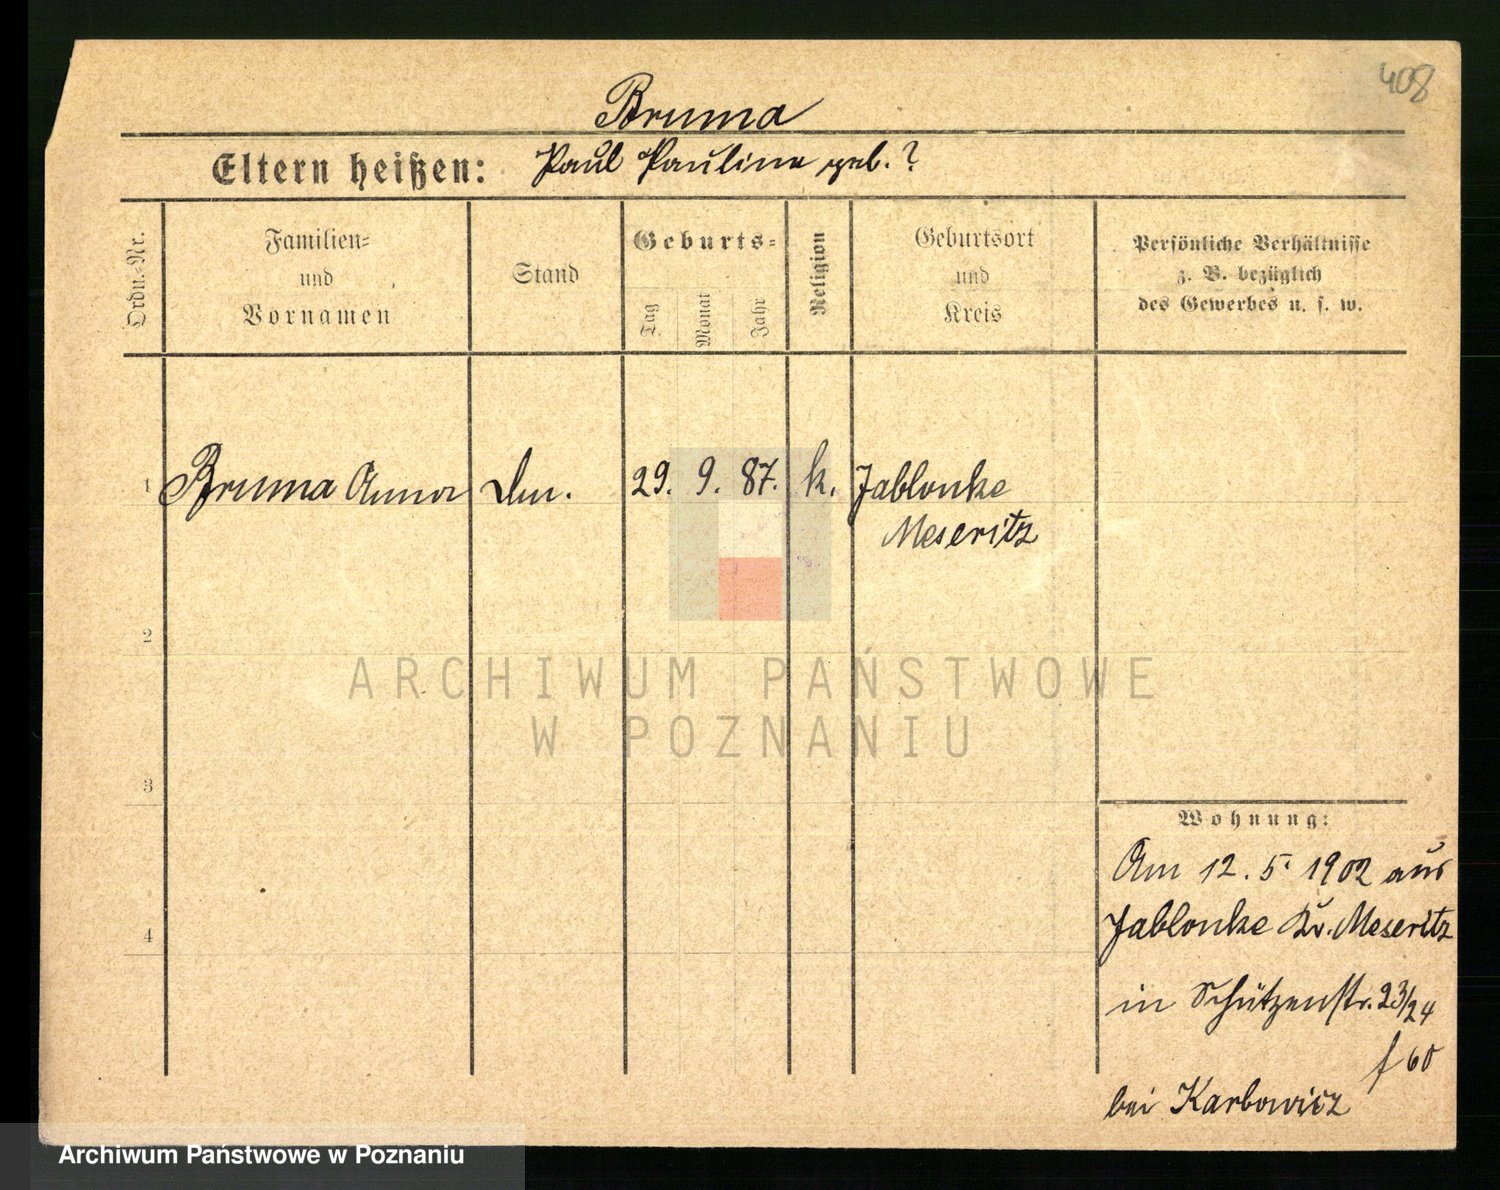 408
Bruma
Eltern heißen: Paul Pauline geb. ?
Ordn.-Nr.
Familien-
und
Vornamen
Stand
Geburts-
Tag
Monat
Jahr
Religion
Geburtsort
und
Kreis
Persönliche Verhältnisse
z. B. bezüglich
des Gewerbes u. s. w.
1 Bruma Anna 29. 9. 87. k. Jablonke
Meseritz
2
3
4
Wohnung:
Am 12. 5. 1902 aus
Jablonke Kr. Meseritz
in Schützenstr. 23/24
f 60
bei Karbowicz
ARCHIWUM PAŃSTWOWE
W POZNANIU
Archiwum Państwowe w Poznaniu